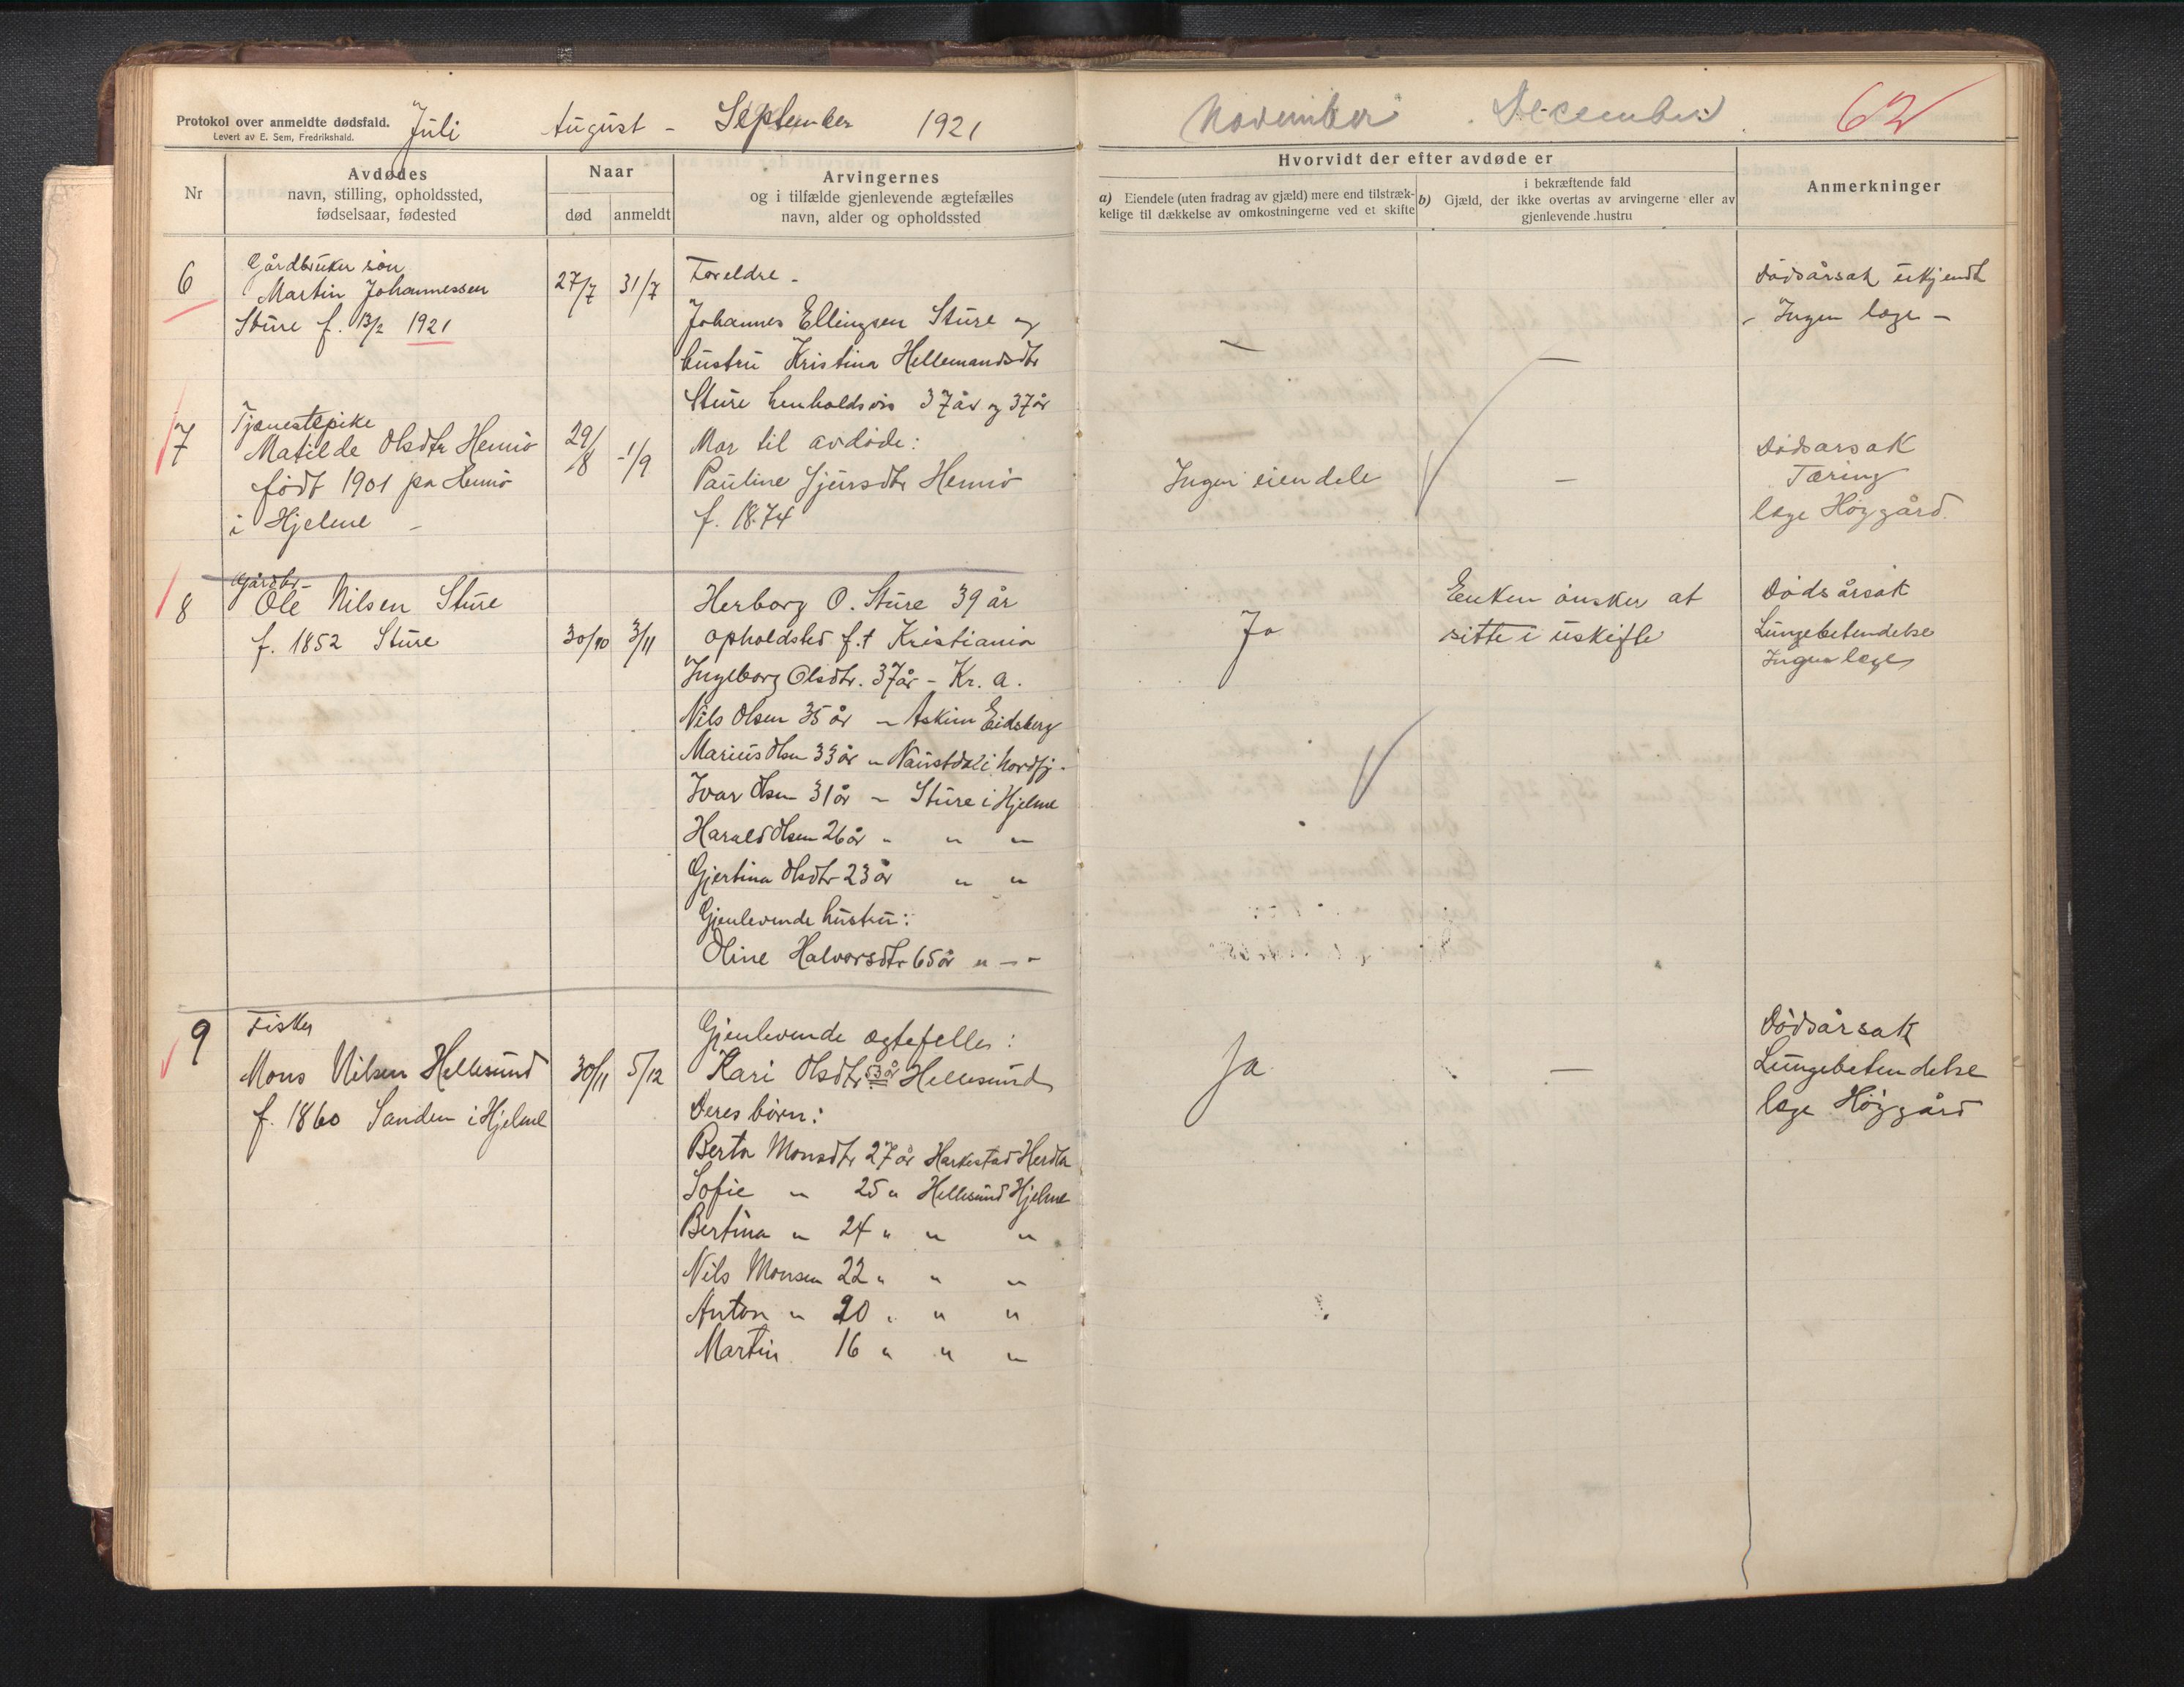 Protokol over anmeldte dødsfald.
Levert av E. Sem, Fredrikshald.
Juli August – September 1921
November . December . 62
Nr
Avdødes
navn, stilling, opholdssted,
fødselsaar, fødested
Naar
død
anmeldt
Arvingernes
og i tilfælde gjenlevende ægtefælles
navn, alder og opholdssted
Hvorvidt der efter avdøde er
a) Eiendele (uten fradrag av gjæld) mere end tilstræk-
kelige til dækkelse av omkostningerne ved et skifte
i bekræftende fald
b) Gjæld, der ikke overtas av arvingerne eller av
gjenlevende hustru
Anmerkninger
6
Gårdbruker søn
Martin Johannessen
Sture f. 13/2 1921
27/7
31/7
Foreldre –
Johannes Ellingsen Sture og
hustru Kristina Hellemandsdtr
Sture henholdsvis 37 år og 37 år
–
–
Dødsårsak ukjendt
– Ingen læge –
7
Tjænestepike
Matilde Olsdtr Hernø
født 1901 på Hernø
i Hjelme –
29/8
1/9
Mor til avdøde:
Pauline Sjursdtr Hernø
f. 1874
Ingen eiendele
–
Dødsarsak
Tæring
læge Høygård.
8
Gårdbr –
Ole Nilsen Sture
f. 1852 Sture
30/10
3/11
Herborg O. Sture 39 år
opholdsted f.t Kristiania
Ingeborg Olsdtr. 37 år – Kr. a.
Nils Olsen 35 år – Askim Eidsberg
Marius Olsen 33 år " Naustdal i Nordfj.
Ivar Olsen 31 år – Sture i Hjelme
Harald Olsen 26 år " " "
Gjertina Olsdtr 23 år " "
Gjenlevende hustru:
Oline Halvorsdtr 65 år " – "
Ja
Enken ønsker at
sitte i uskifte
Dødsårsak
Lungebetendelse
Ingen læge
9
Fisker
Mons Nilsen Hellesund
f. 1860 Sanden i Hjelme
30/11
5/12
Gjenlevende ægtefelle:
Kari Olsdtr 53 år Hellesund
Deres børn:
Berta Monsdtr 27 år Harkestad Herdla
Sofie " 25 " Hellesund Hjelme
Bertina " 24 " " "
Nils Monsen 22 " " "
Anton " 20 " " "
Martin 16 " " "
Ja
–
Dødsårsak
Lungebetendelse
læge Høygård